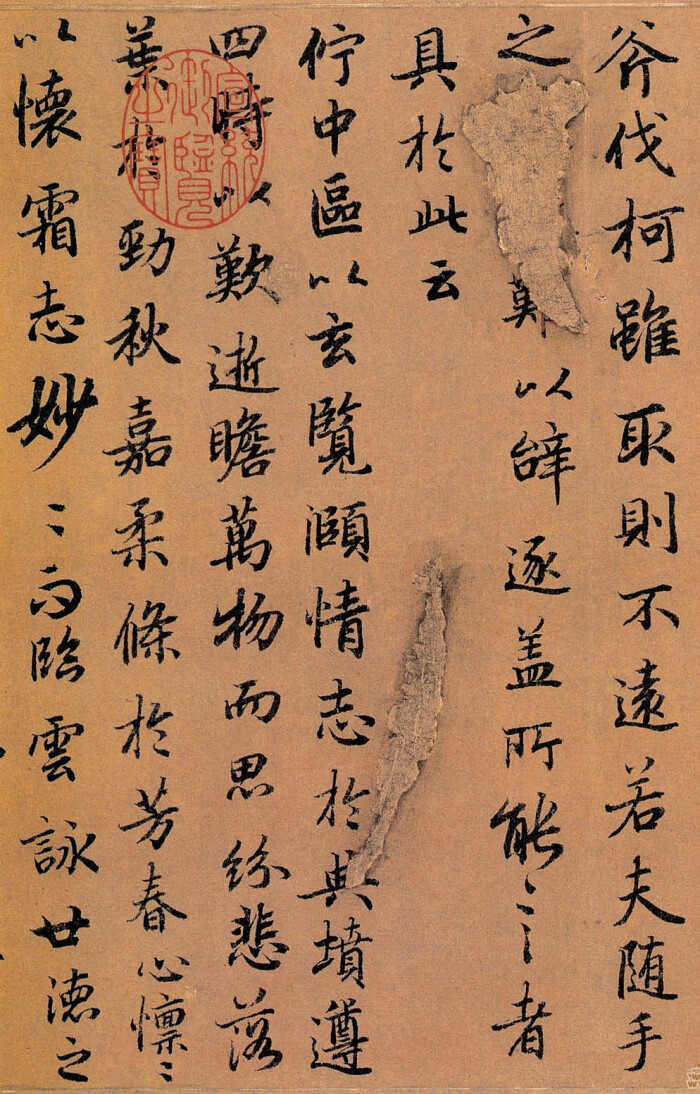 斧伐柯雖取則不遠若夫随手
之難以辞逐盖所能言者
具於此云
佇中區以玄覽頤情志於典墳遵
四時以歎逝瞻萬物而思紛悲落
葉於勁秋嘉柔條於芳春心懍〻
以懷霜志妙〻而臨雲詠世徳之
宣統
御覽
之寶